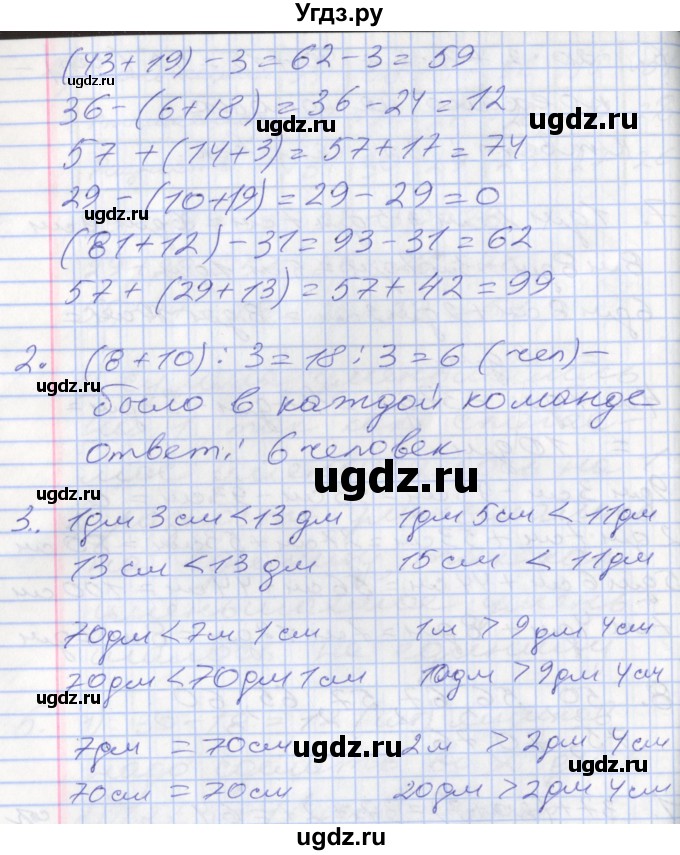 Угдз.ру
(43+19)-3=62-3=59
36-(6+18)=36-24=12
57+(14+3)=57+17=74
29-(10+19)=29-29=0
(81+12)-31=93-31=62
57+(29+13)=57+42=99
2. (8+10):3=18:3=6 (чел)-
было в каждой команде
ответ: 6 человек
3. 1дм 3см<13дм 1дм 5см < 11дм
13см <13дм 15см < 11дм
70дм<7м 1см 1м > 9дм 4см
70дм<70дм 1см 10дм >9дм 4см
7дм = 70см 2м > 2дм 4см
70см = 70см 20дм >2дм 4см
ugdz.ru
ugdz.ru
ugdz.ru
ugdz.ru
ugdz.ru
ugdz.ru
ugdz.ru
ugdz.ru
Угдз.ру